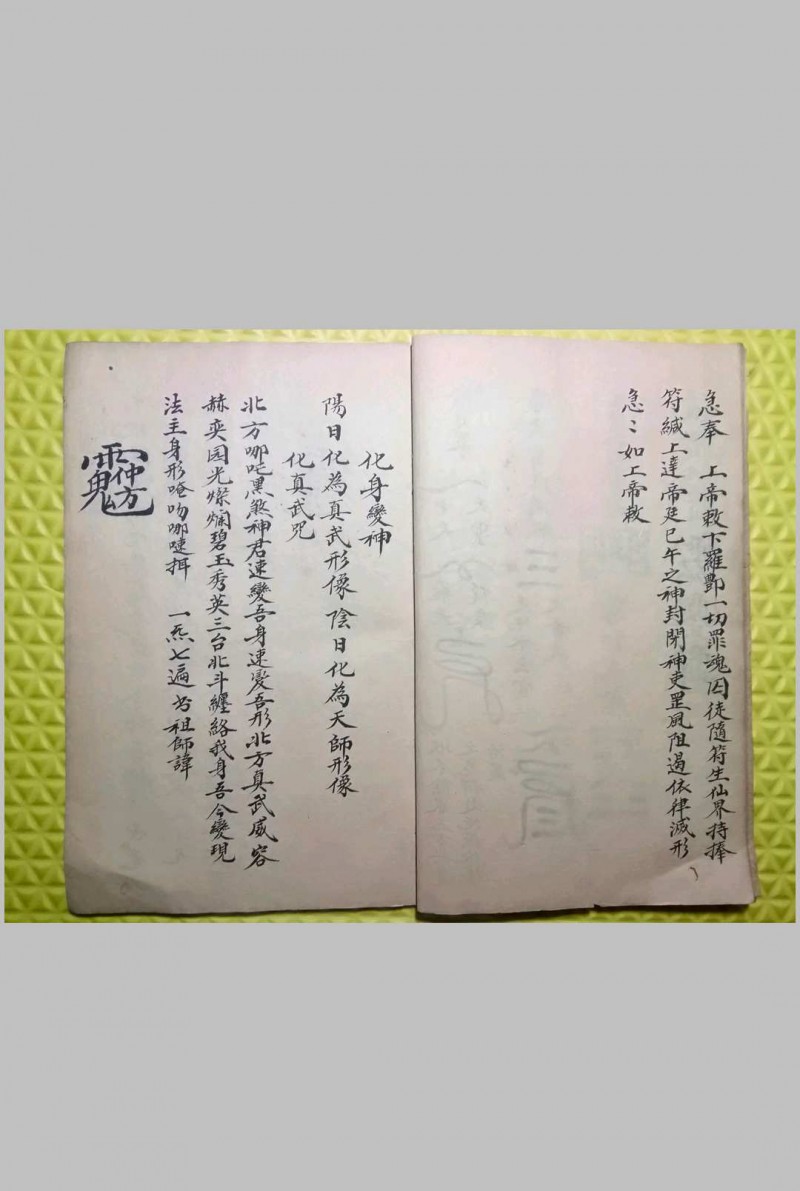 急奉 上帝敕下羅酆一切罪魂囚徒隨符生仙界持捧
符緘上達帝廷巳午之神封閉神吏罡風阻過依律滅形
急〻如上帝敕
化身變神
陽日化為真武形像 陰日化為天師形像
化真武咒
北方哪吒黑煞神君速變吾身速变吾形北方真武威容
赫奕园光燦爛碧玉秀英三台北斗纏絡我身吾今變現
法主身形唵吻哪嗹揖 一炁七遍 书祖師諱